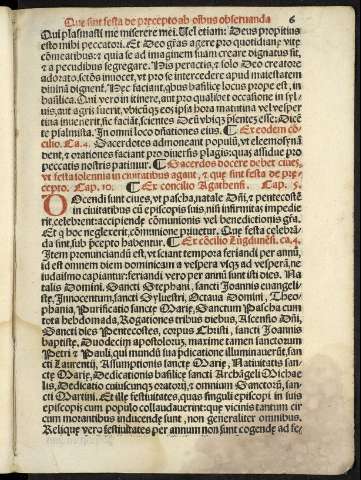 Que sint festa de precepto ab oībus obseruanda 6
Qui plasmasti me miserere mei. Uel etiam: Deus propitius
esto mihi peccatori. Et Deo grās agere pro quotidiane vite
cōmeatibus: et quia se ad imaginem suam creare dignatus sit,
et a pecudibus segregare. His peractis, et solo Deo creatore
adorato, sctōs inuocet, vt pro se intercedere apud maiestatem
diuinā dignent. Hec faciant, qbus basilice locus prope est, in
basilica. Qui vero in itinere, aut pro qualibet occasione in syl
uis, aut agris fuerit, vbicūqs eos ipsa hora matutina vel vesper
tina inuenerit, sic faciat, scientes Deū vbiqs pntez esse: Dicē
te psalmista. In omni loco dnationes eius. ¶ Ex eodem cō-
cilio. Ca. 4. Sacerdotes admoneant populū, vt eleemosynā
dent, et orationes faciant pro diuersis plagis: quas assidue pro
peccatis nostris patimur. ¶ Sacerdos docere debet ciues,
vt festa solennia in ciuitatibus agant, et que sint festa de pre-
cepto. Cap. 10. ¶ Ex concilio Agathensi. Cap. 5.
DOcendi sunt ciues, vt pascha, natale Dñi, et pentecostē
in ciuitatibus cū episcopis suis, nisi infirmitas impedie
rit, celebrent: accipiendę cōmunionis vel benedictionis grā.
Et q hoc neglexerit, cōmunione priuetur. Que festa celebrā-
da sint, sub pcepto habentur. ¶ Ex cōcilio Lugdunēsi. ca. 4.
Item pronunciandū est, vt sciant tempora feriandi per annū,
id est omnem diem dominicam a vespera vsqs ad vesperā, ne
iudaismo capiantur. feriandi vero per annū sunt isti dies. Na
talis Domini, Sancti Stephani, sancti Joannis euangeli-
stę, Innocentum, sancti Syluestri, Octaua Domini, Theo-
phania, Purificatio sanctę Marię, Sanctum Pascha cum
tota hebdomada, Rogationes tribus diebus, Ascensio Dñi,
Sancti dies Pentecostes, corpus Christi, sancti Joannis
baptistę, Duodecim apostolorum, maxime tamen sanctorum
Petri et Pauli, qui mundū sua pdicatione illuminauerūt, san
cti Laurentii, Assumptionis sanctę Marię, Natiuitatis san-
ctę Marię, Dedicationis basilicę sancti Archāgeli Michae
lis, Dedicatio cuiuscunqs oratorij, et omnium Sanctorū, san-
cti Martini. Et illę festiuitates, quas singuli episcopi in suis
episcopiis cum populo collaudauerint: que vicinis tantum cir
cum morantibus inducendę sunt, non generaliter omnibus.
Reliquę vero festiuitates per annum non sunt cogendę ad fe-